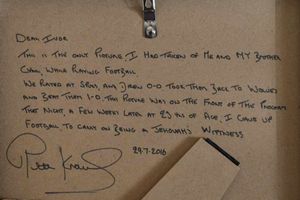 DEAR IVOR
THIS IS THE ONLY PICTURE I HAD TAKEN OF ME AND MY BROTHER
CYRIL WHILE PLAYING FOOTBALL
WE PLAYED AT SPURS AND DREW 0-0 TOOK THEM BACK TO WOLVES
AND BEAT THEM 1-0. THIS PICTURE WAS ON THE FRONT OF THE PROGRAM
THAT NIGHT, A FEW WEEKS LATER AT 23 YRS OF AGE, I GAVE UP
FOOTBALL TO CARRY ON BEING A JEHOVAH'S WITNESS
Peter
29.7.2016